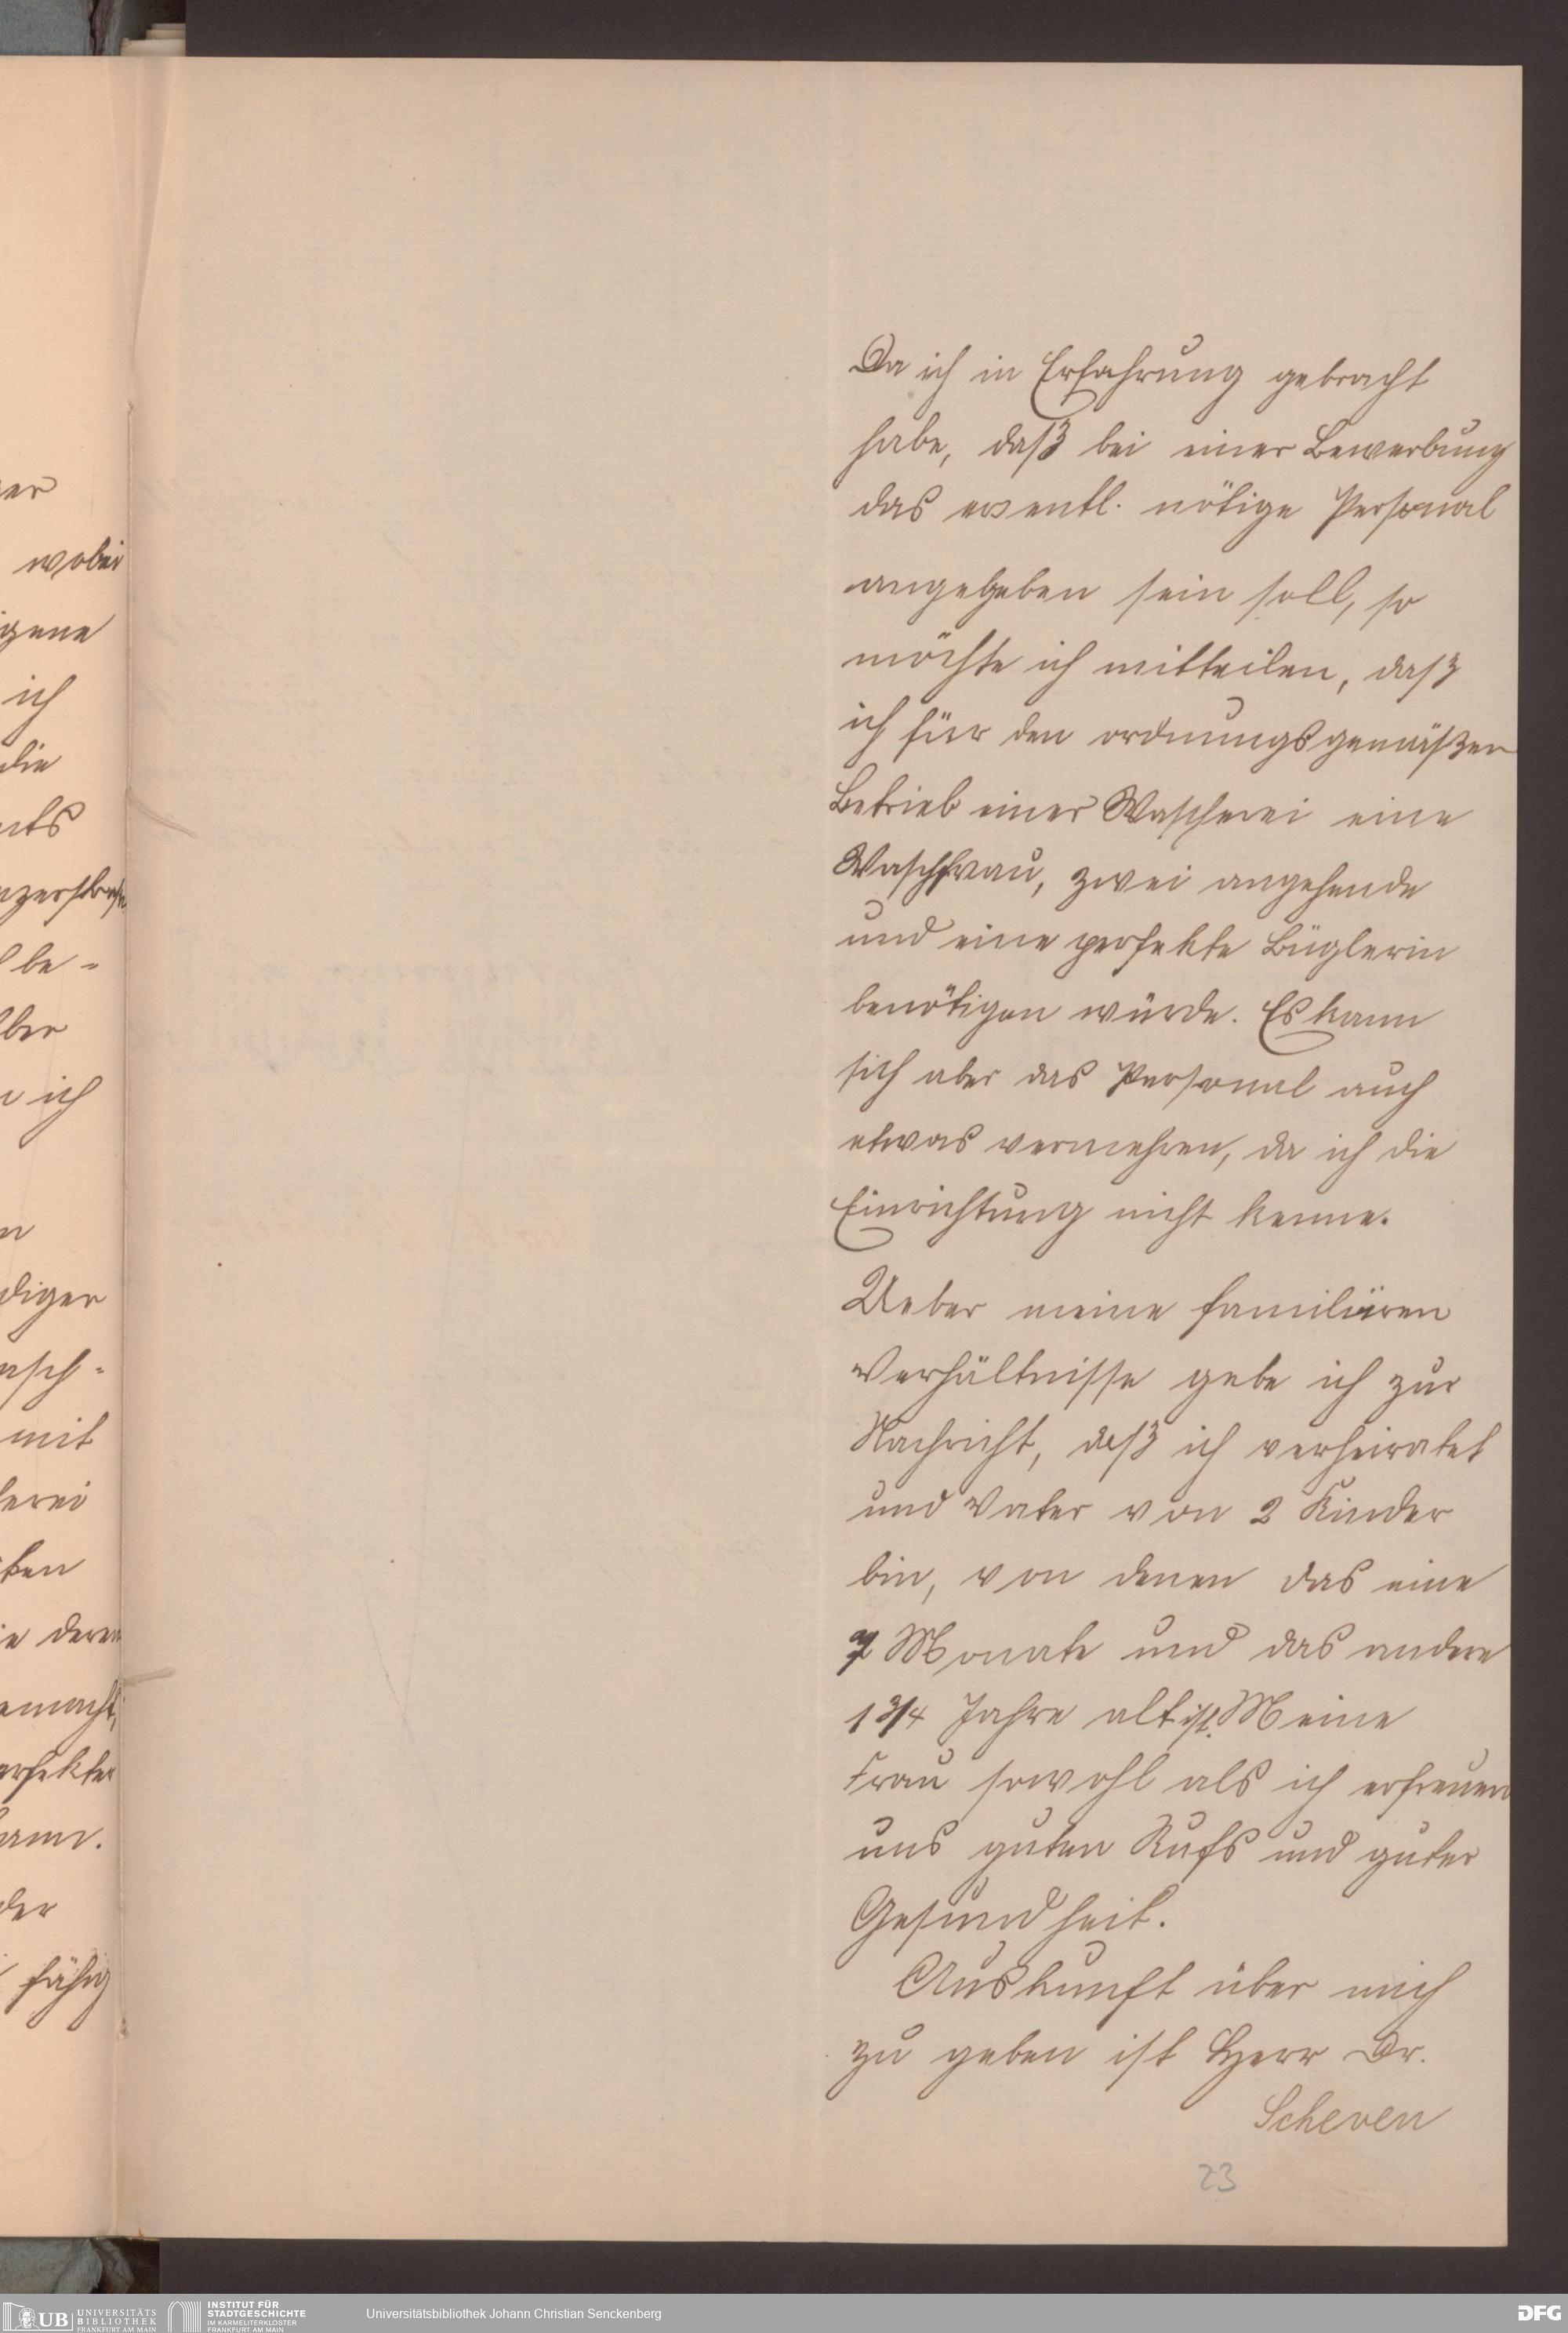 Da ich in Erfahrung gebracht
habe, daß bei einer Bewerbung
das eventl. nötige Personal
angegeben sein soll, so
möchte ich mitteilen, daß
ich für den ordnungsgemäßen
Betrieb einer Wascherei eine
Waschfrau, zwei angehende
und eine perfekte Büglerin
benötigen würde. Es kann
sich aber das Personal auch
etwas vermehren, da ich die
Einrichtung nicht kenne.
Ueber meine familiären
Verhältnisse gebe ich zur
Nachricht, daß ich verheiratet
und Vater von 2 Kinder
bin, von denen das eine
Monate und das andere
1 3/4 Jahre alt ist. Meine
Frau sowohl als ich erfreuen
uns guten Rufs und guter
Gesundheit.
Auskunft über mich
zu geben ist Herr Dr.
Scheven
23
wobei
igene
ich
die
nts
be-
ich
diger
asch-
mit
erei
ten
deren
emacht,
erfekter
ann.
der
fähig
UB UNIVERSITÄTS
BIBLIOTHEK
FRANKFURT AM MAIN
INSTITUT FÜR
STADTGESCHICHTE
IM KARMELITERKLOSTER
FRANKFURT AM MAIN
Universitätsbibliothek Johann Christian Senckenberg
DFG